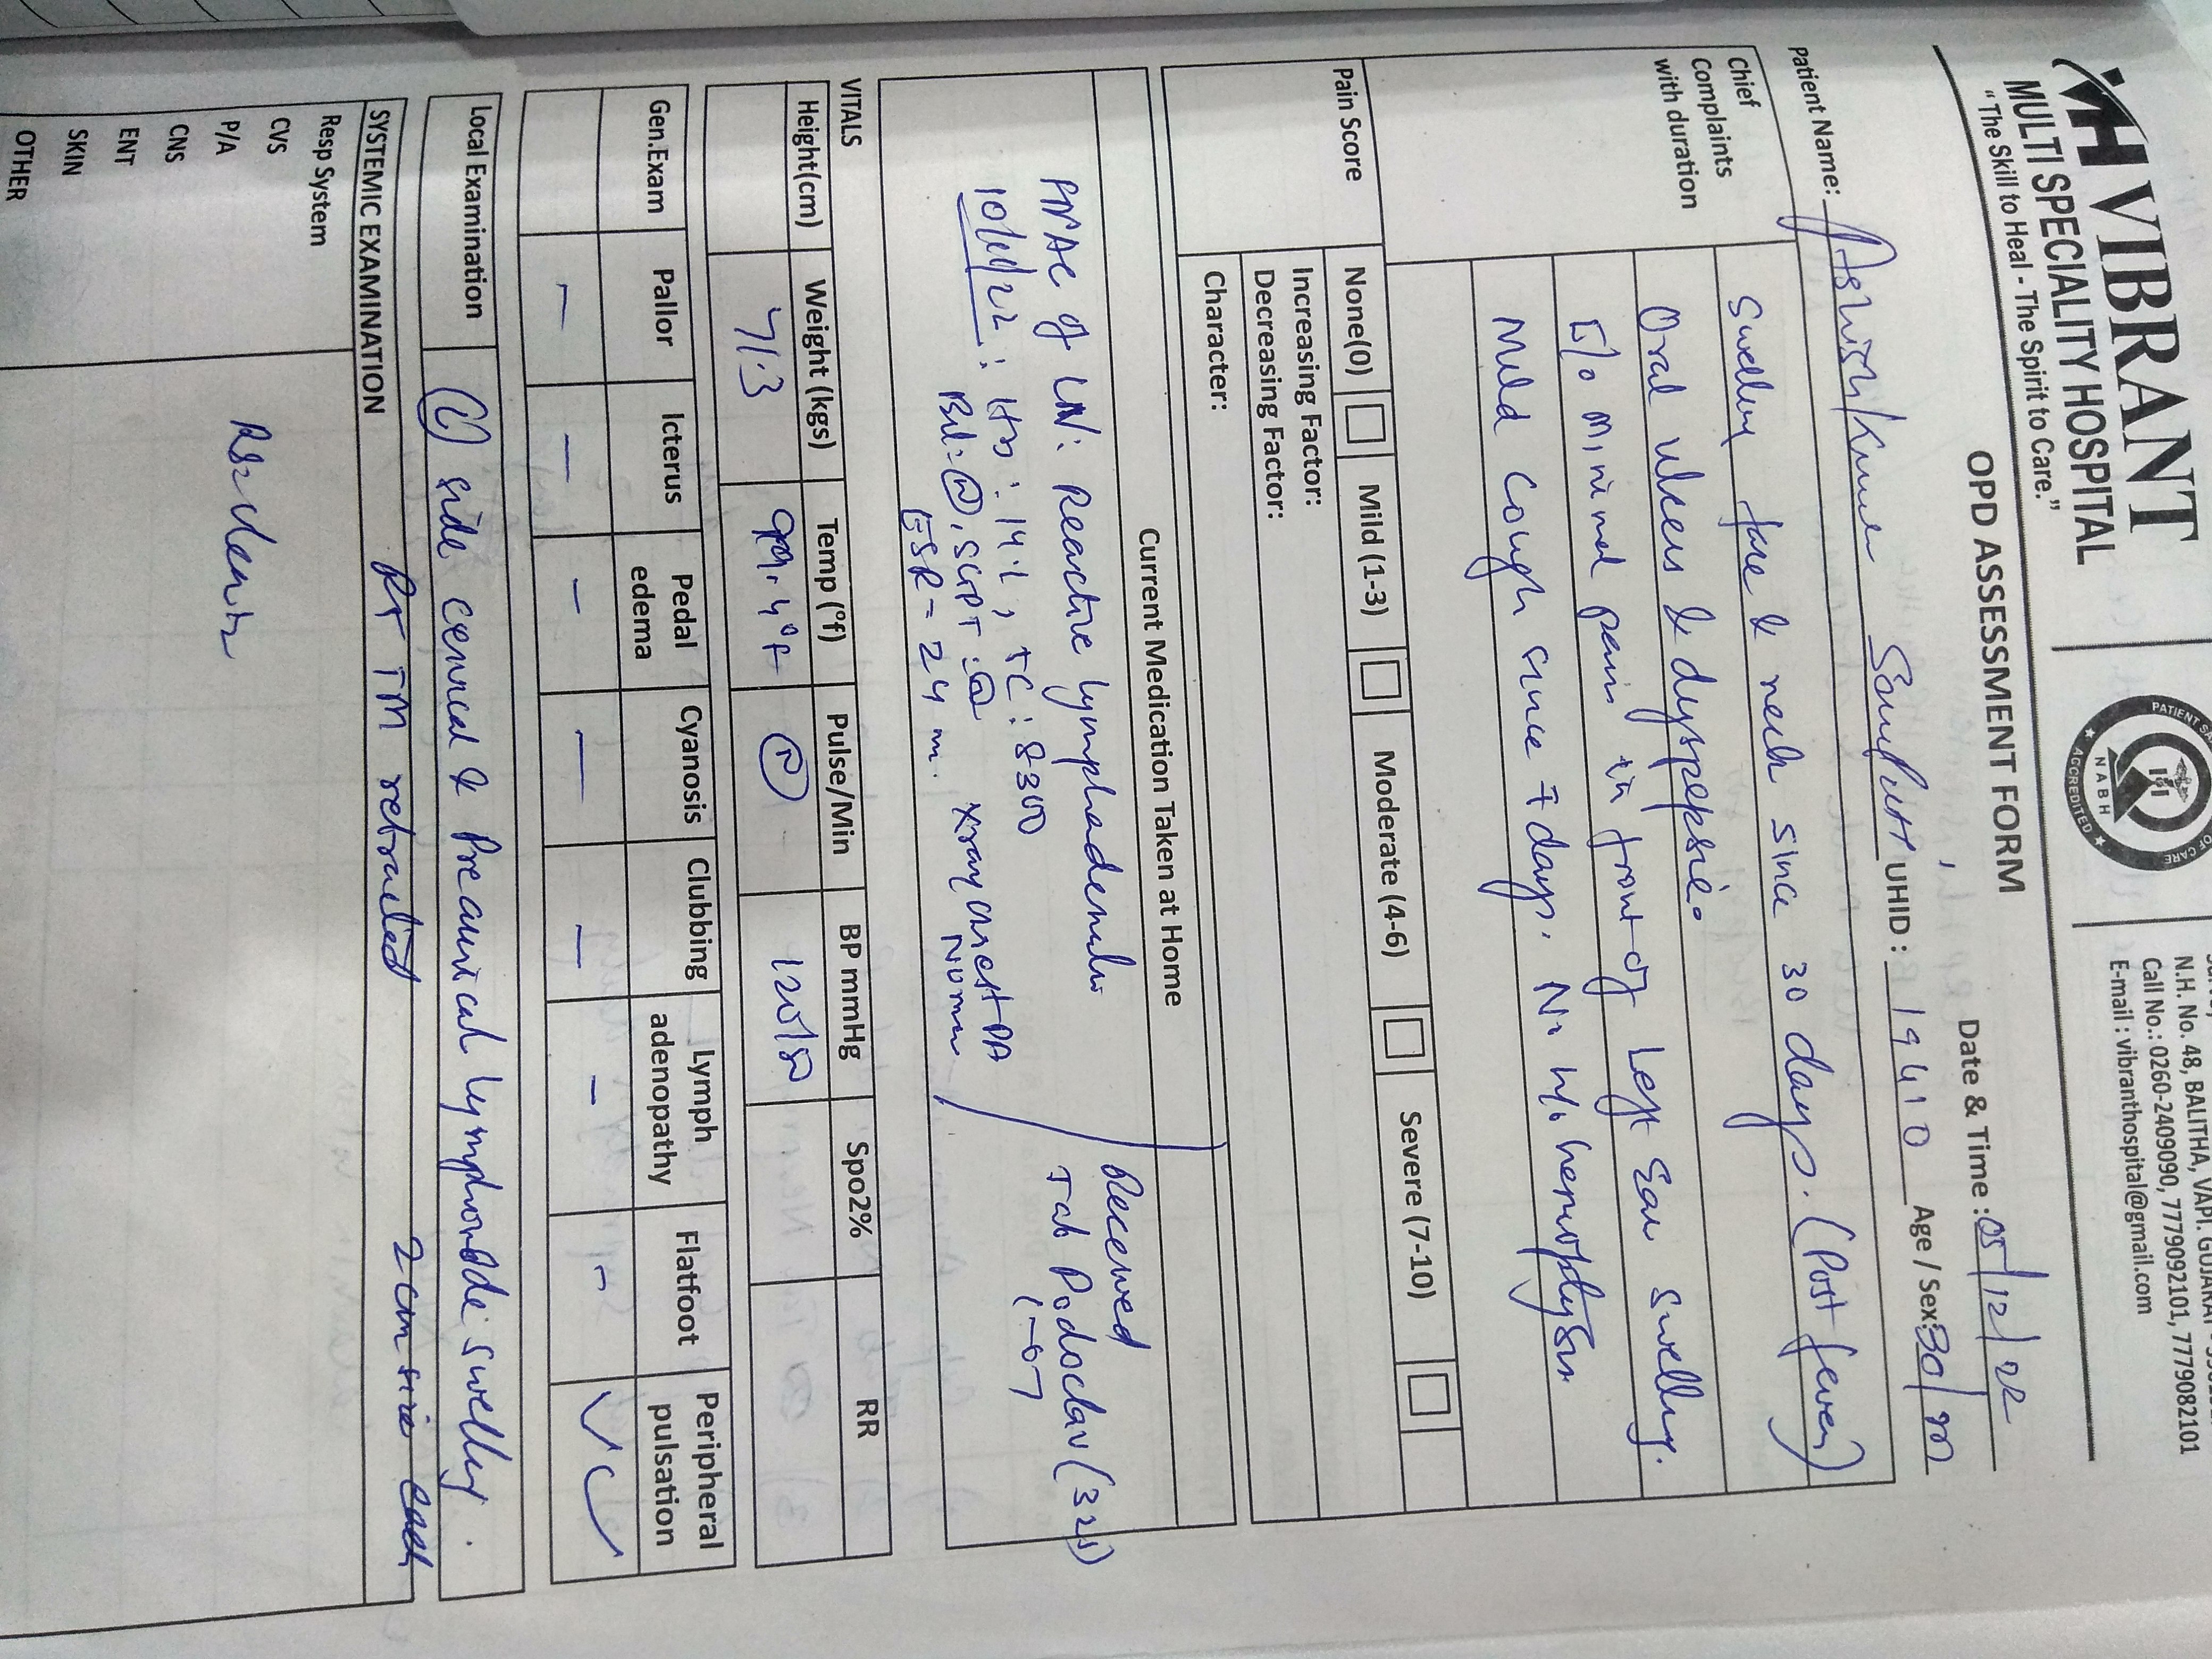 VIBRANT
MULTI SPECIALITY HOSPITAL
"The Skill to Heal - The Spirit to Care."
PATIENT OF CARE
NABH
ACCREDITED
N.H. No. 48, BALITHA, VAPI. GUJARAT
Call No.: 0260-2409090, 7779092101, 7779082101
E-mail : vibranthospital@gmail.com
OPD ASSESSMENT FORM
Date & Time : 05/12/22
Patient Name: UHID : 19410 Age / Sex: 30/m
Chief Complaints with duration
Swelling face & neck since 30 days. (Post fever)
Oral ulcers & dyspepsia.
minimal pain in front of Left Ear swelling.
Mild cough since 7 days. No h/o hemoptysis
Pain Score None(0) Mild (1-3) Moderate (4-6) Severe (7-10)
Increasing Factor:
Decreasing Factor:
Character:
Current Medication Taken at Home
FNAC of LN: Reactive lymphadenitis
Received
Tab Podoclav (325)
1-07
10/11/22 : Hb : 14.1, TC : 8300
Bil: N, SGPT : N
ESR = 24 m.
Xray chest PA
Normal
VITALS
Height(cm) Weight (kgs) Temp (°f) Pulse/Min BP mmHg Spo2% RR
71.3 99.4°F N 120/80
Gen.Exam Pallor Icterus Pedal edema Cyanosis Clubbing Lymph adenopathy Flatfoot Peripheral pulsation
– – – – – – –
Local Examination (L) side cervical & Preauricular lymphnode swelling.
2 cm size each
SYSTEMIC EXAMINATION RT TM retracted
Resp System
CVS
P/A
RS = clear
CNS
ENT
SKIN
OTHER